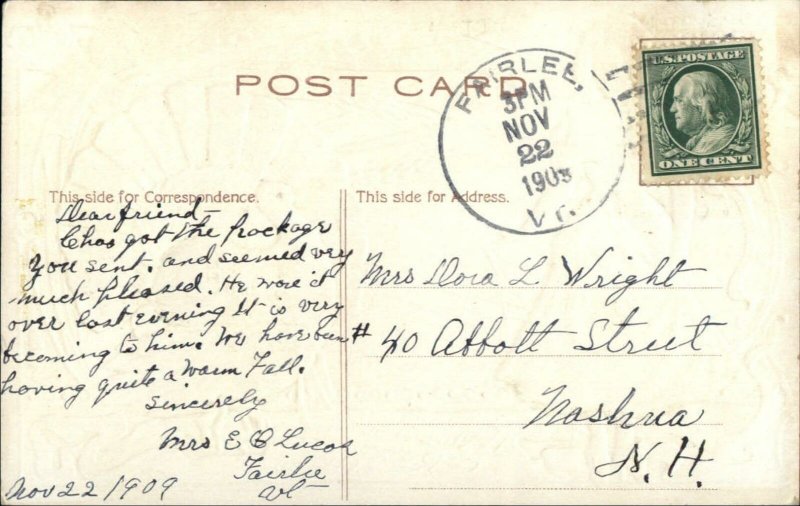 POST CARD
FAIRLEE,
3PM
NOV
22
1909
VT.
U.S. POSTAGE
ONE CENT
This side for Correspondence.
This side for Address.
Dear friend—
Chas got the package
you sent, and seemed very
much pleased. He wore it
over last evening It is very
becoming to him. We have been
having quite a warm Fall.
Sincerely
Mrs E C Lucas
Fairlee
Vt
Nov 22 1909
Mrs Dora L Wright
# 40 Abbott Street
Nashua
N. H.